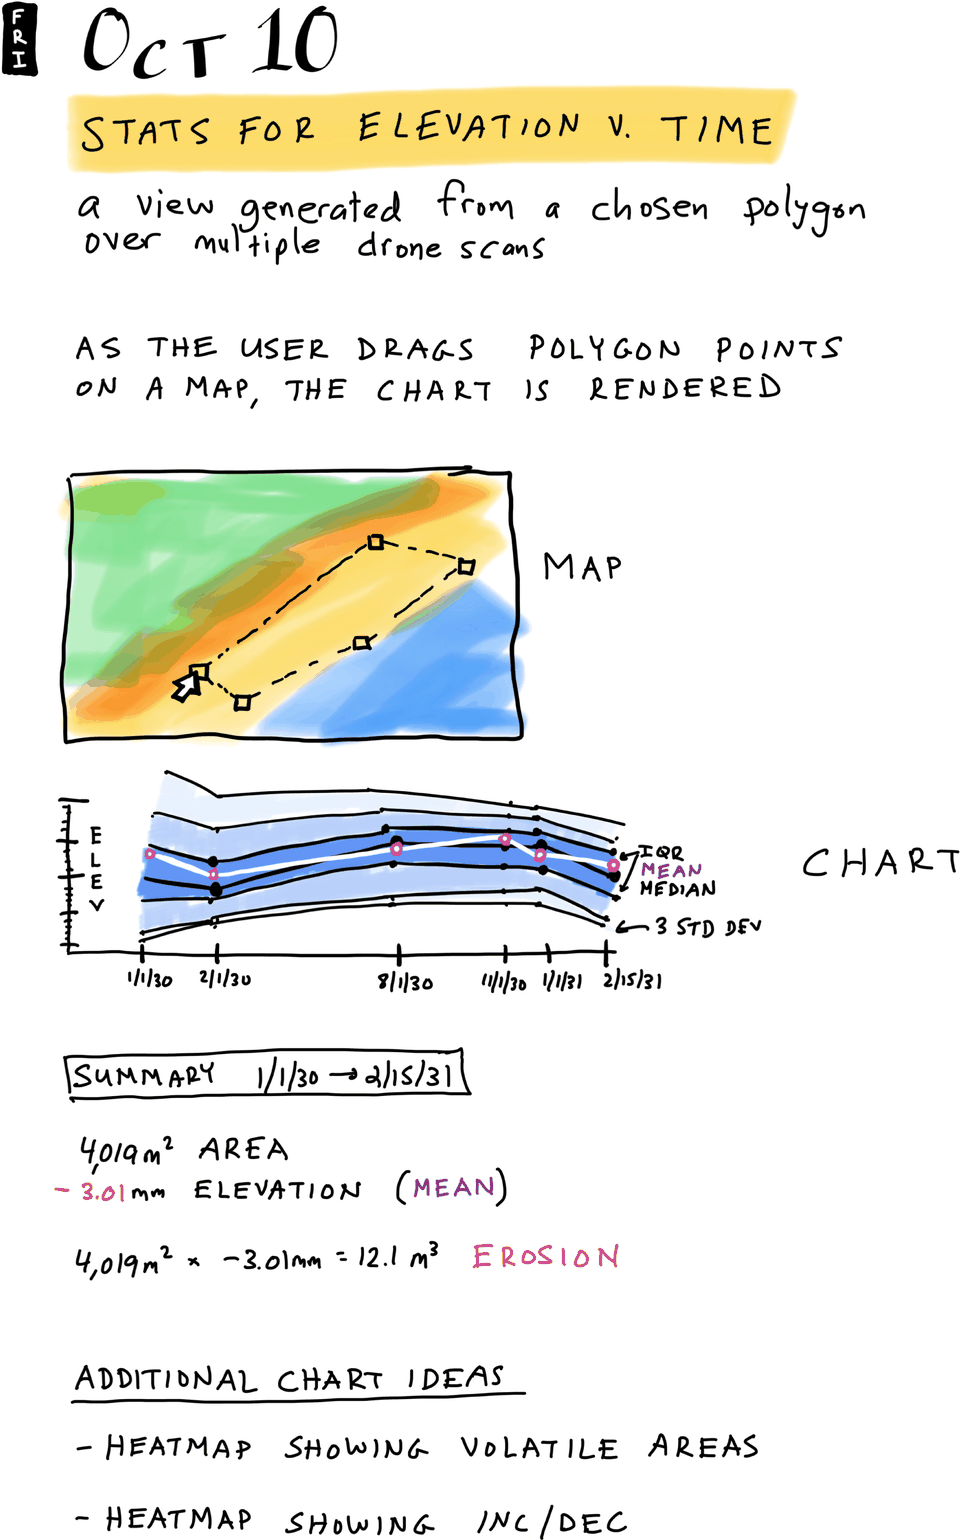 FRI
OCT 10
STATS FOR ELEVATION V. TIME
a view generated from a chosen polygon
over multiple drone scans
AS THE USER DRAGS POLYGON POINTS
ON A MAP, THE CHART IS RENDERED
MAP
ELEV
IQR
MEAN
MEDIAN
3 STD DEV
CHART
1/1/30 2/1/30 8/1/30 11/1/30 1/1/31 2/15/31
SUMMARY 1/1/30 → 2/15/31
4,019m² AREA
- 3.01mm ELEVATION (MEAN)
4,019m² × -3.01mm = 12.1 m³ EROSION
ADDITIONAL CHART IDEAS
- HEATMAP SHOWING VOLATILE AREAS
- HEATMAP SHOWING INC/DEC